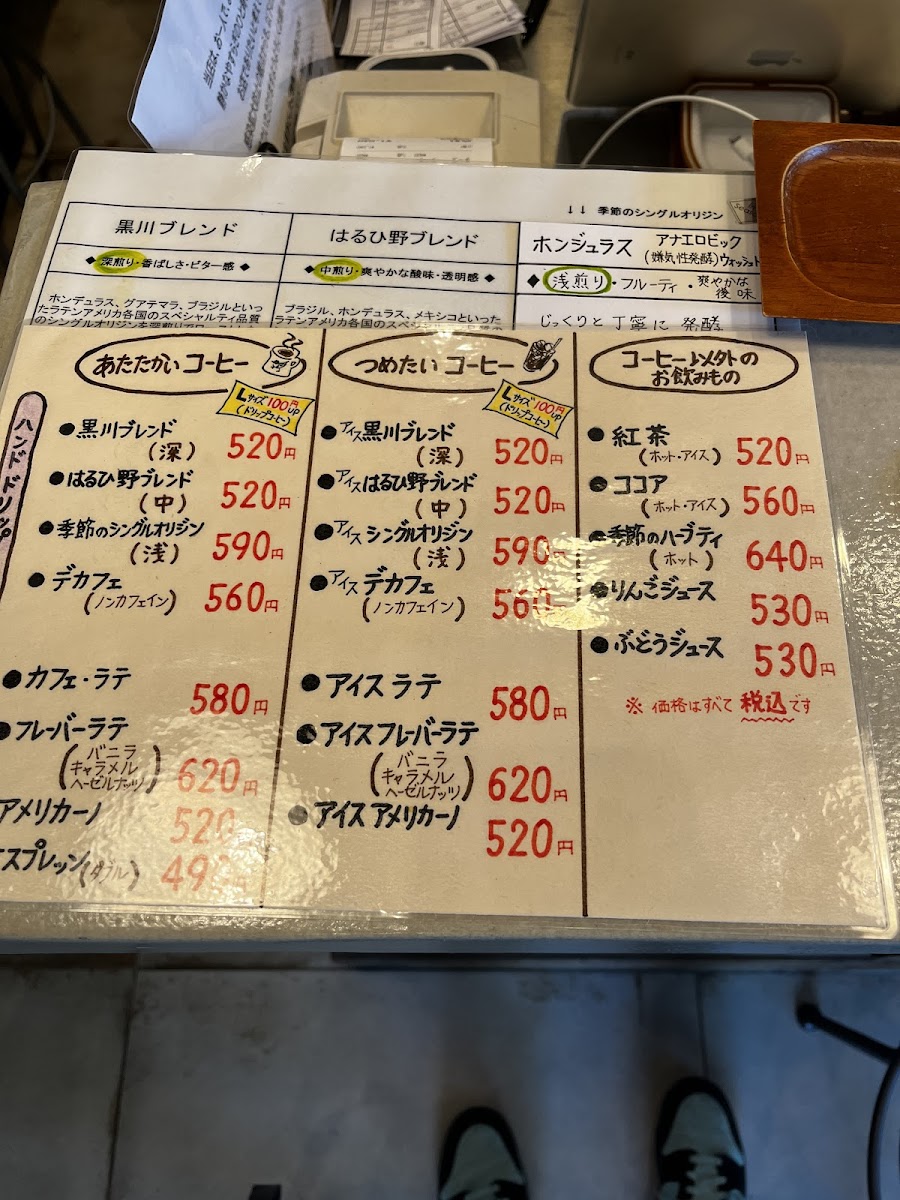 ↓↓ 季節のシングルオリジン
黒川ブレンド
◆深煎り・香ばしさ・ビター感◆
ホンデュラス、グアテマラ、ブラジルといっ
たラテンアメリカ各国のスペシャルティ品質
はるひ野ブレンド
◆中煎り・爽やかな酸味・透明感◆
ブラジル、ホンデュラス、メキシコといった
ホンジュラス アナエロビック
(嫌気性発酵)ウォッシュト
◆浅煎り・フルーティ・爽やかな
後味
じっくりと丁寧に発酵
ハンドドリップ
あたたかいコーヒー
Lサイズ100円UP
(ドリップコーヒー)
●黒川ブレンド
(深) 520円
●はるひ野ブレンド
(中) 520円
●季節のシングルオリジン
(浅) 590円
●デカフェ
(ノンカフェイン) 560円
●カフェ・ラテ
580円
●フレーバーラテ
(バニラ
キャラメル
ヘーゼルナッツ) 620円
アメリカーノ 520
スプレッソ(ダブル) 49
つめたいコーヒー
Lサイズ100円UP
(ドリップコーヒー)
●アイス黒川ブレンド
(深) 520円
●アイスはるひ野ブレンド
(中) 520円
●アイスシングルオリジン
(浅) 590円
●アイスデカフェ
(ノンカフェイン) 560円
●アイスラテ
580円
●アイスフレーバーラテ
(バニラ
キャラメル
ヘーゼルナッツ) 620円
●アイスアメリカーノ
520円
コーヒー以外の
お飲みもの
●紅茶
(ホット・アイス) 520円
●ココア
(ホット・アイス) 560円
●季節のハーブティ
(ホット) 640円
●りんごジュース
530円
●ぶどうジュース
530円
※価格はすべて税込です